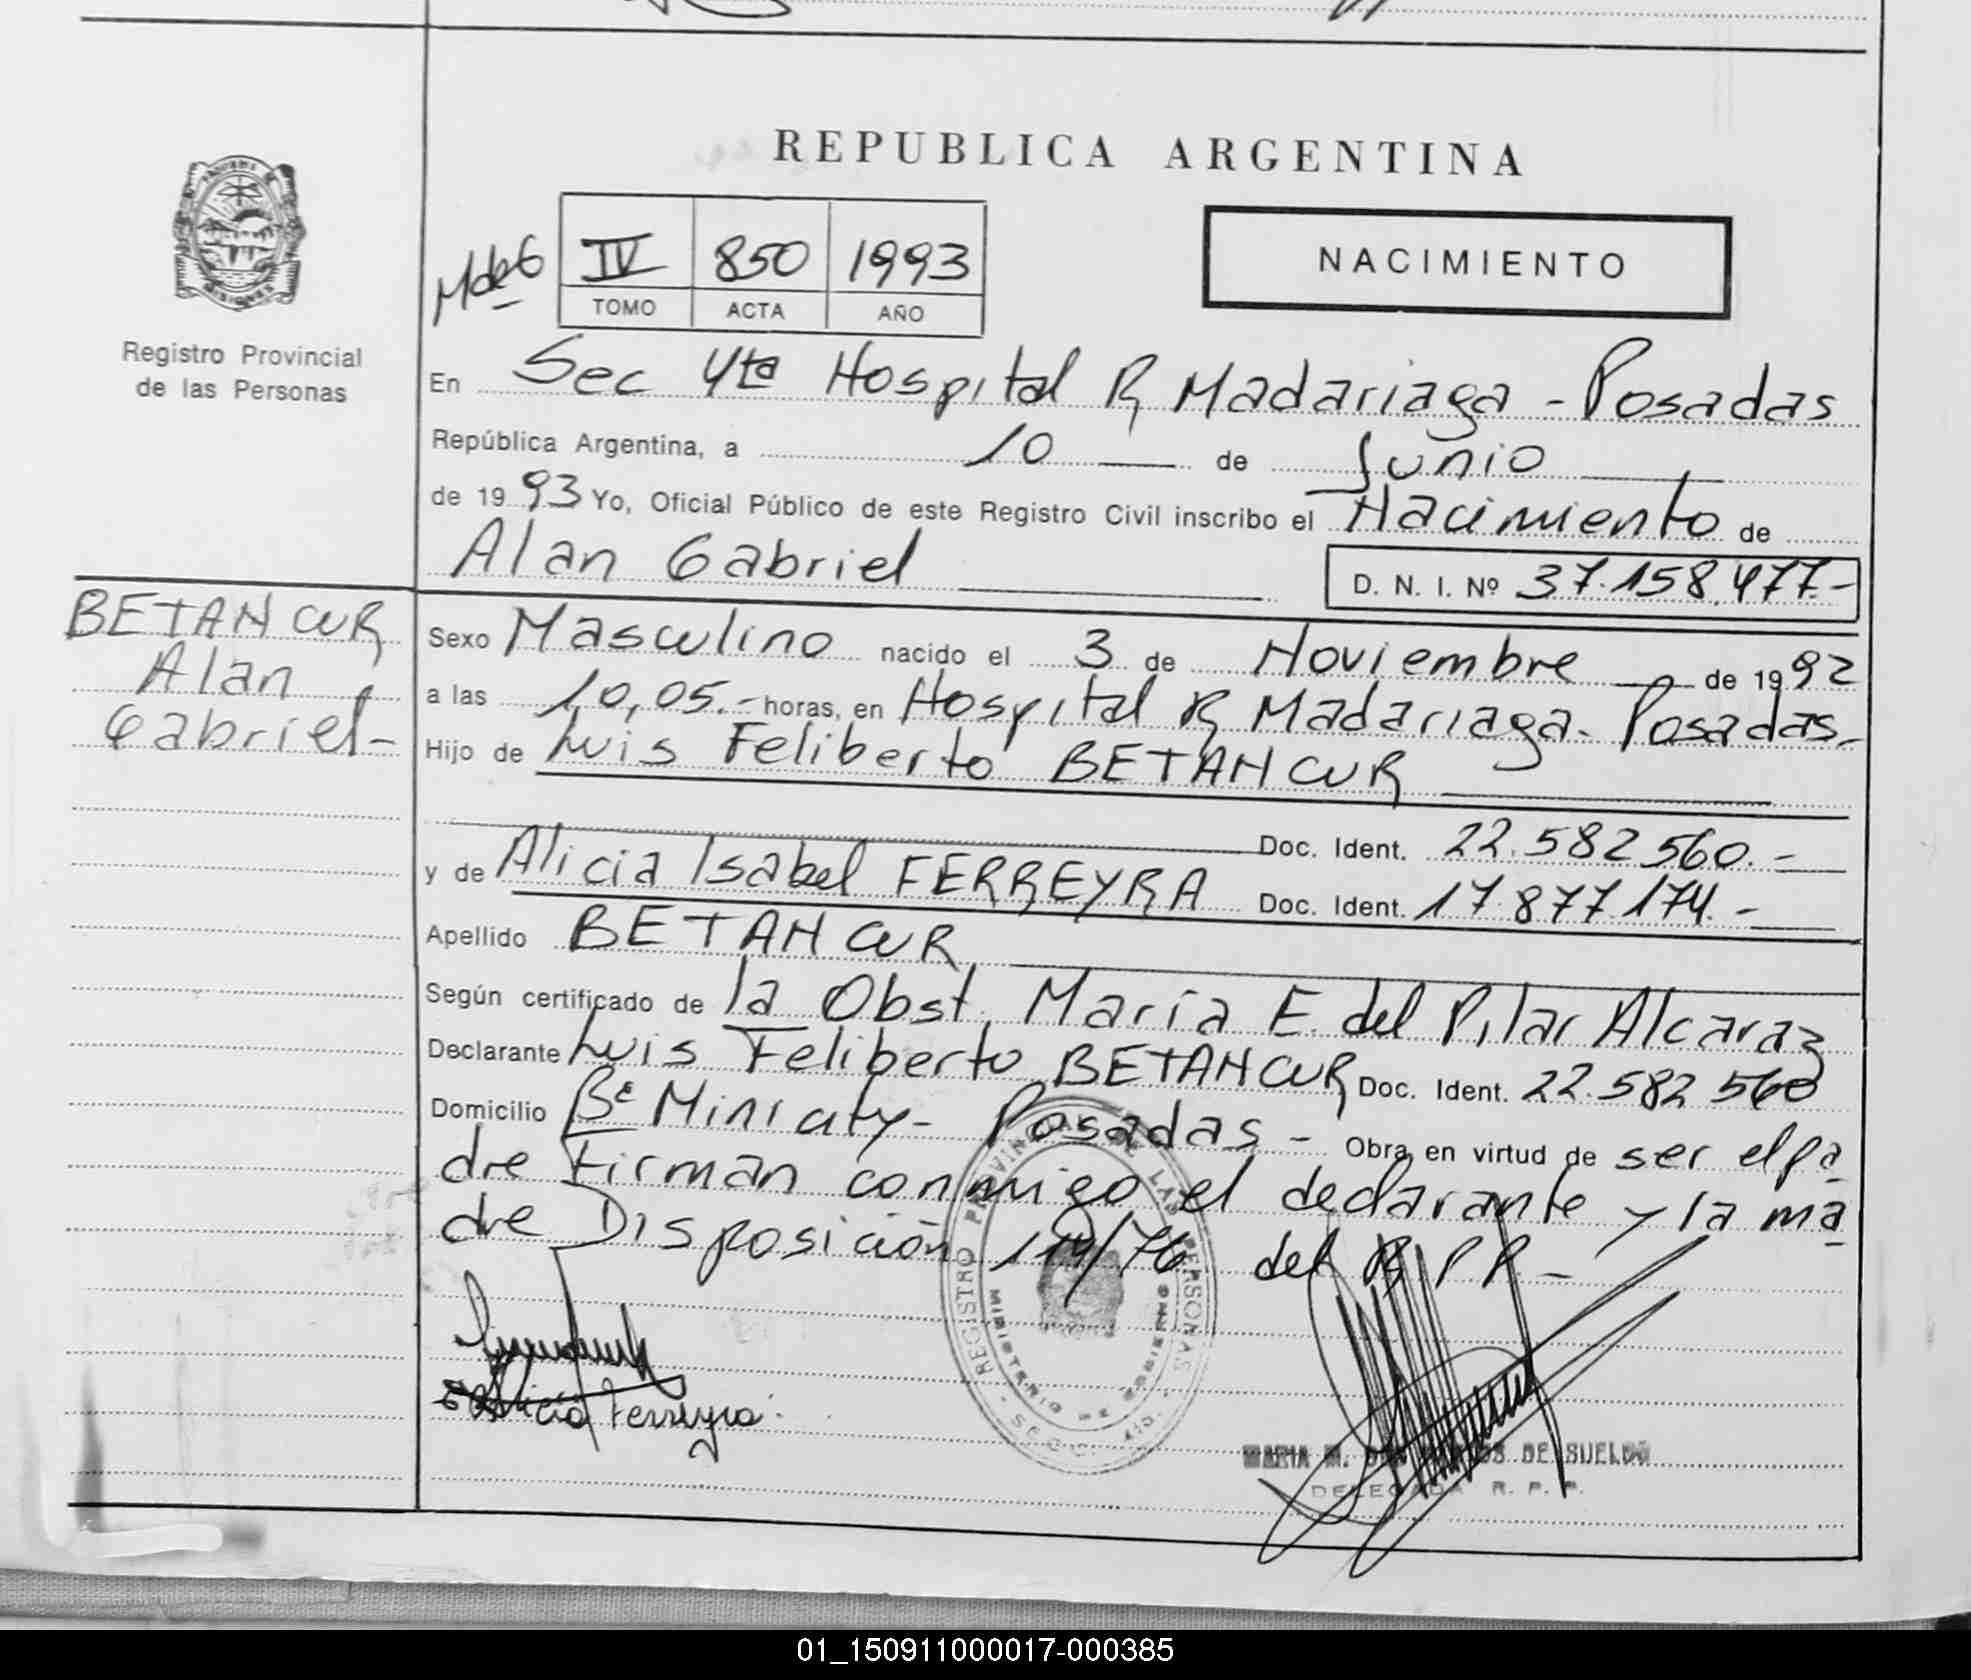 REPUBLICA ARGENTINA
MISIONES
Registro Provincial
de las Personas
IV 850 1993
TOMO ACTA AÑO
NACIMIENTO
En Sec 4ta Hospital R Madariaga - Posadas
República Argentina, a 10 de Junio
de 1993 Yo, Oficial Público de este Registro Civil inscribo el Nacimiento de
Alan Gabriel
D. N. I. Nº 37.158.477.-
BETANCUR
Alan
Gabriel-
Sexo Masculino nacido el 3 de Noviembre de 1992
a las 10,05.- horas, en Hospital R Madariaga- Posadas-
Hijo de Luis Feliberto BETANCUR
Doc. Ident. 22.582560.-
y de Alicia Isabel FERREYRA Doc. Ident. 17.877.174.-
Apellido BETANCUR
Según certificado de la Obst. María E. del Pilar Alcaraz
Declarante Luis Feliberto BETANCUR Doc. Ident. 22.582 560
Domicilio Bº Minicity- Posadas - Obra en virtud de ser el pa
dre Firman conmigo el declarante y la ma
dre Disposición /76 del R P P. -
REGISTRO PROVINCIAL DE LAS PERSONAS
MINISTERIO DE GOBIERNO
Alicia Ferreyra.
MARIA M. DE SUELDO
DELEGADA R. P. P.
01_150911000017-000385